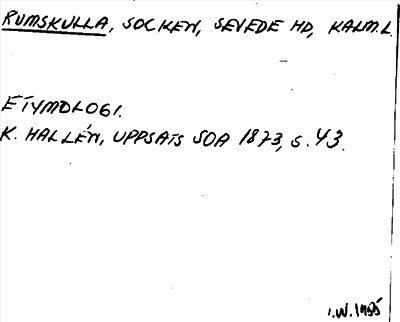 RUMSKULLA, SOCKEN, SEVEDE HD, KALM.L.
ETYMOLOGI.
K. HALLÉN, UPPSATS SOA 1873, S. 43.
I.W. 1955